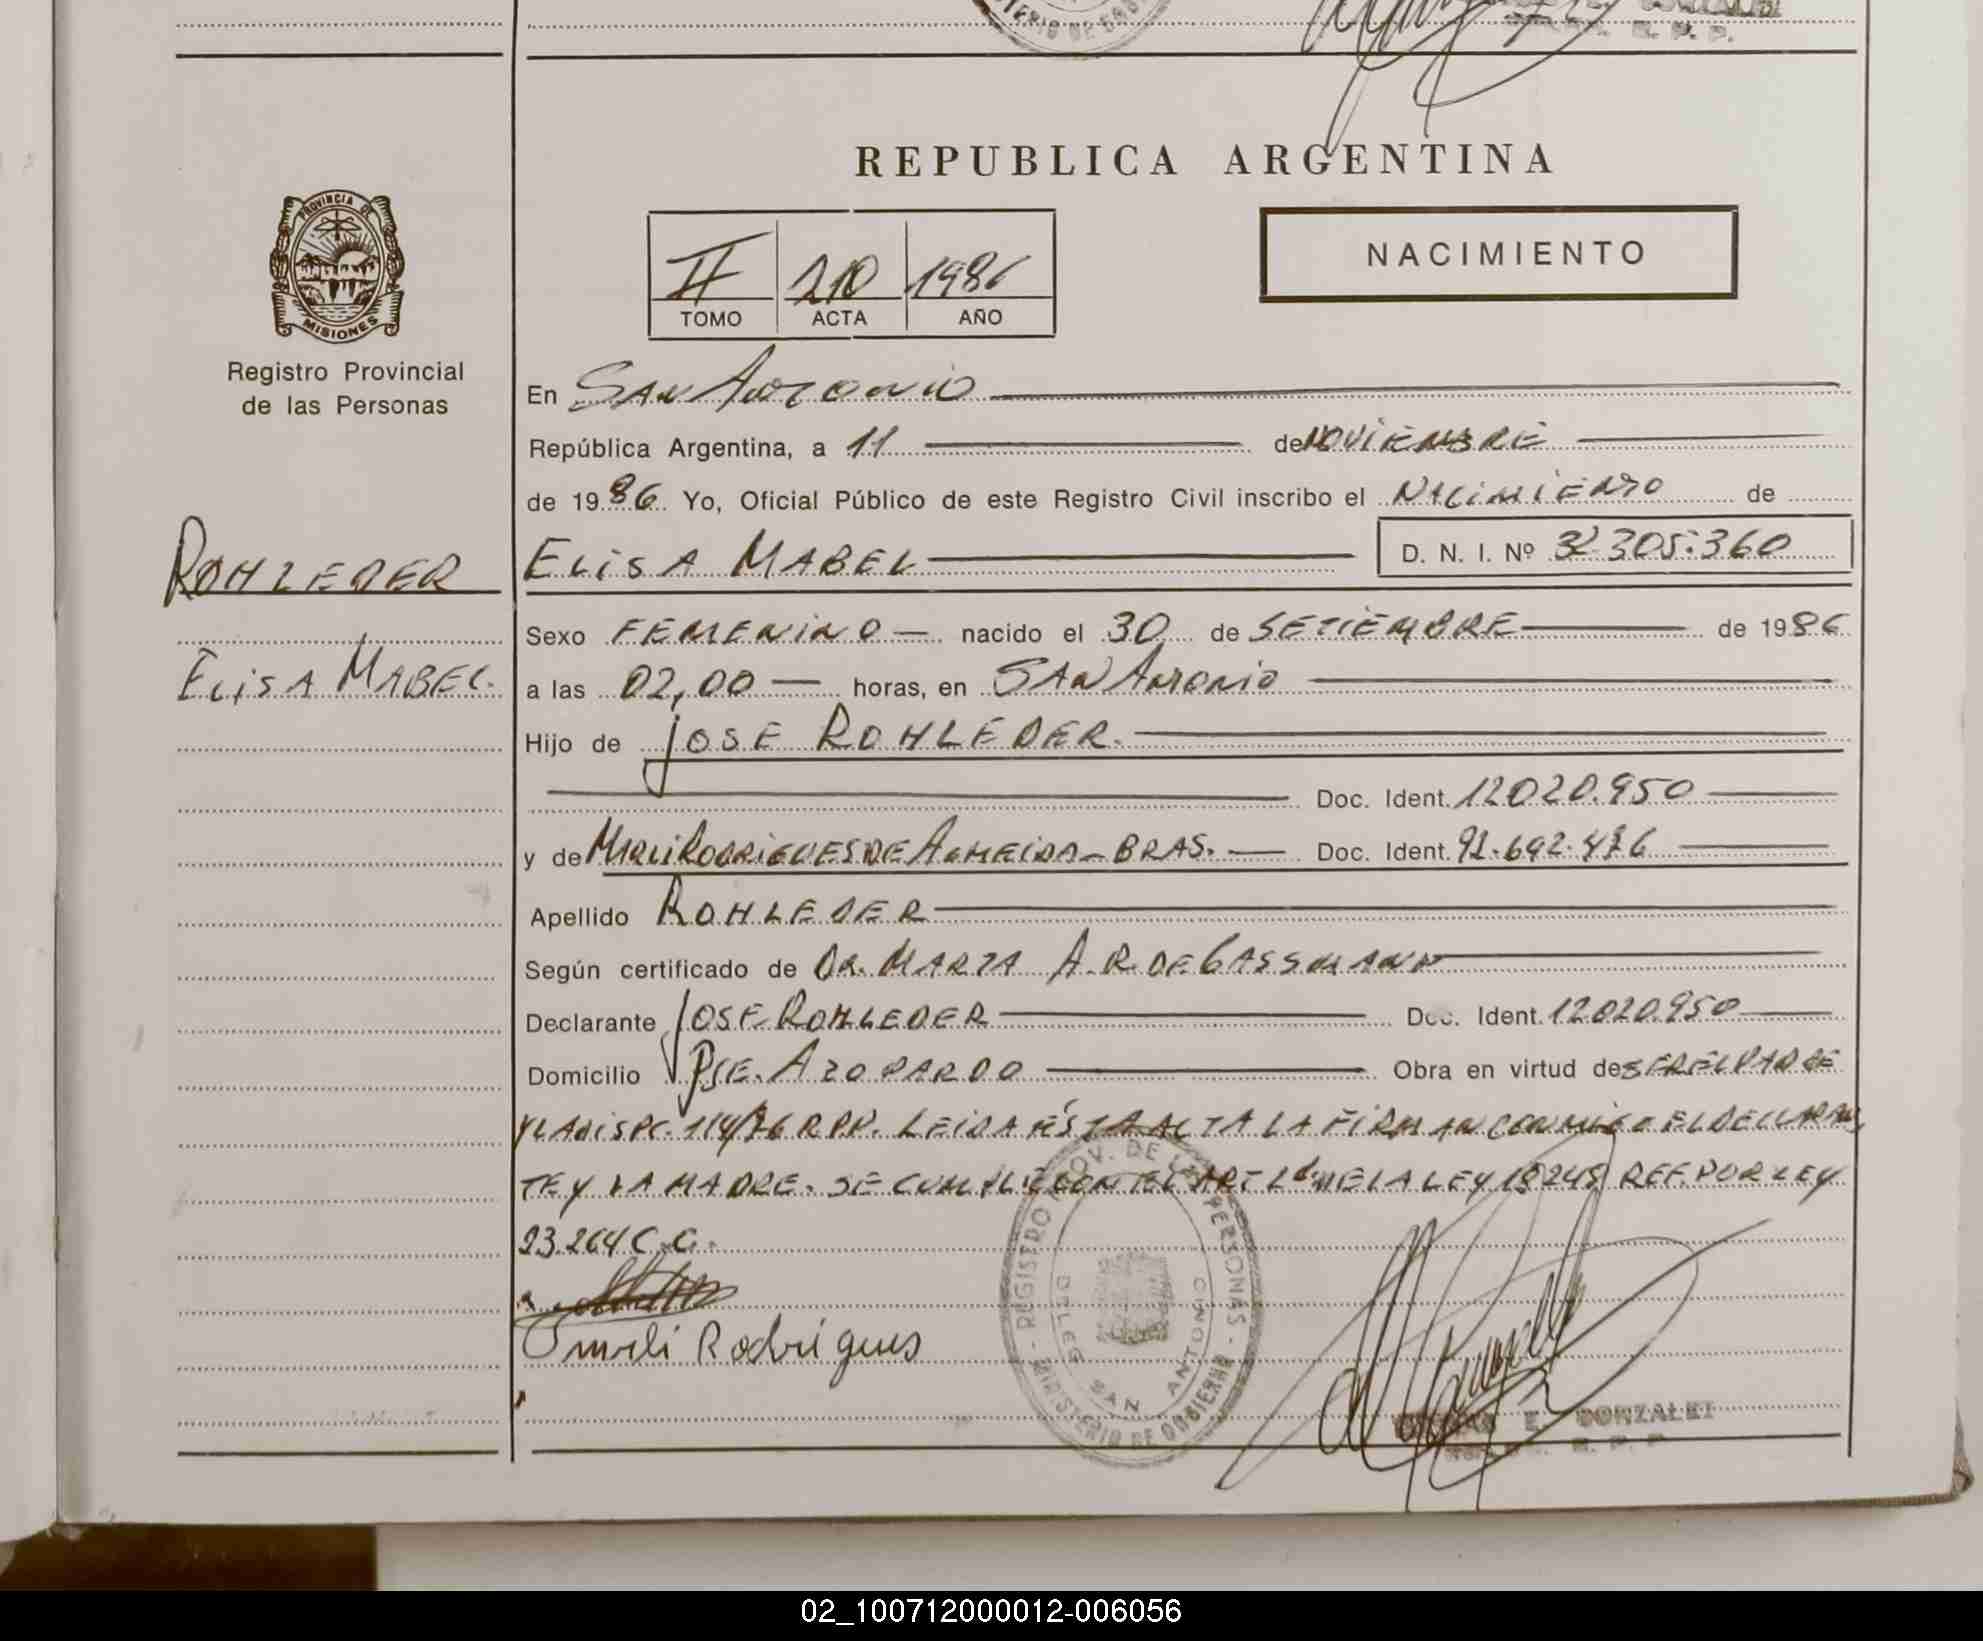 REPUBLICA ARGENTINA
PROVINCIA DE
MISIONES
Registro Provincial
de las Personas
II 210 1986
TOMO ACTA AÑO
NACIMIENTO
En SAN ANTONIO
República Argentina, a 11 de NOVIEMBRE
de 1986. Yo, Oficial Público de este Registro Civil inscribo el NACIMIENTO de
ROHLEDER
ELISA MABEL
ELISA MABEL D. N. I. Nº 32.305.360
Sexo FEMENINO nacido el 30 de SETIEMBRE de 1986
a las 02,00 horas, en SAN ANTONIO
Hijo de JOSE ROHLEDER.
Doc. Ident. 12020.950
y de MARLI RODRIGUES DE ALMEIDA - BRAS. Doc. Ident. 92.692.
Apellido ROHLEDER
Según certificado de DR. MARTA A.R. DE GASSMANN
Declarante JOSE ROHLEDER Doc. Ident. 12020950
Domicilio PJE. AZOPARDO Obra en virtud de SER EL PADRE
Y LA DISPC. 114/76 RPP. LEIDA ÉSTA ACTA LA FIRMAN CONMIGO EL DECLARAN
TE Y LA MADRE. SE CUMPLIÉ CON EL ART DE LA LEY 18248 REF. POR LEY
23.264 C.C.
Rodrigues
REGISTRO PROV. DE LAS PERSONAS
MINISTERIO DE GOBIERNO
DELEG SAN ANTONIO
E. GONZALEZ
R. P. P.
02_100712000012-006056